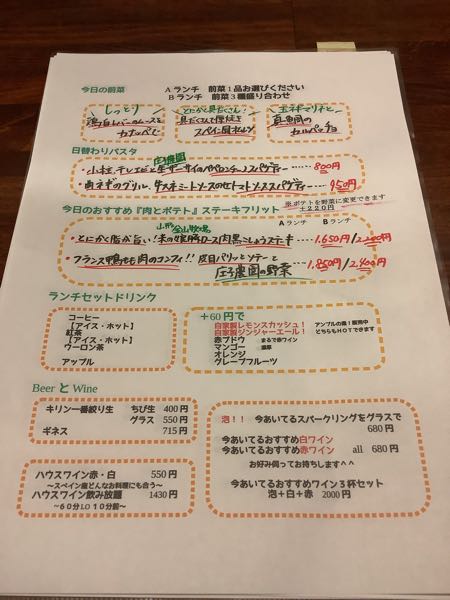 今日の前菜
Aランチ 前菜1品お選びください
Bランチ 前菜3種盛り合わせ
しっとり
鶏白レバーのムースを
カナッペで
とにかく具だくさん!
具だくさんで厚焼き
スペイン風オムレツ
玉ネギマリネと
真鯛の
カルパッチョ
日替わりパスタ
庄農園
・小柱、チンゲン菜と生ザーサイのペペロンチーノスパゲティー・・・・800円
・白ネギのグリル、牛スネミートソースのビアンコスパゲティー・・・・950円
※ポテトを野菜に変更できます
+220円
今日のおすすめ『肉とポテト』ステーキフリット
Aランチ Bランチ
山形 金山牧場
・とにかく脂が旨い!米の娘豚ロース肉黒こしょうステーキ・・・・1.650円/2.200円
・フランス鴨もも肉のコンフィ!! 皮目パリッとソテーと
庄子農園の野菜
・・・・1.850円/2.400円
ランチセットドリンク
コーヒー
【アイス・ホット】
紅茶
【アイス・ホット】
ウーロン茶
アップル
+60円で
自家製レモンスカッシュ!
自家製ジンジャーエール!
どちらもHOTできます
赤ブドウ まるで赤ワイン
マンゴー 濃厚
オレンジ
グレープフルーツ
Beer と Wine
キリン一番絞り生 ちび生 400円
グラス 550円
ギネス 715円
泡!! 今あいてるスパークリングをグラスで
680円
今あいてるおすすめ白ワイン
今あいてるおすすめ赤ワイン all 680円
お好み伺ってお持ちします^^
今あいてるおすすめワイン3杯セット
泡+白+赤 2000円
ハウスワイン赤・白 550円
~スペイン産どんなお料理にも合う~
ハウスワイン飲み放題 1430円
~60分LO10分前~